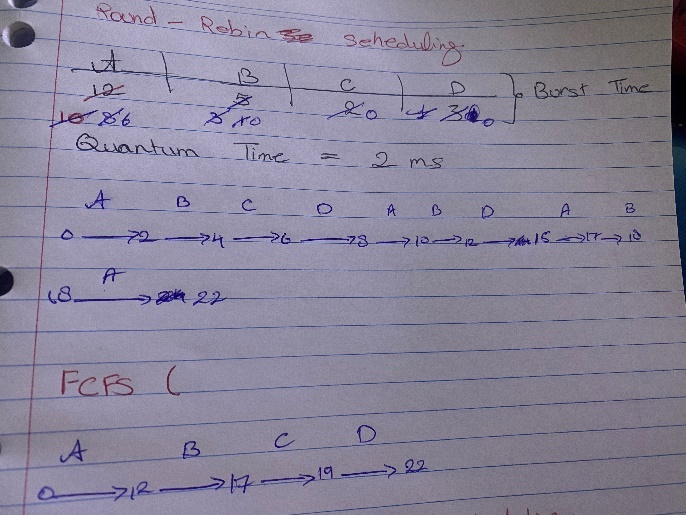 Rond - Robin Scheduling
A B C D Burst Time
12
Quantum Time = 2 ms
A B C D A B D A B
0 → 2 → 4 → 6 → 8 → 10 → 12 → 15 → 17 → 18
A
18 → 22
FCFS (
A B C D
0 → 12 → 17 → 19 → 22